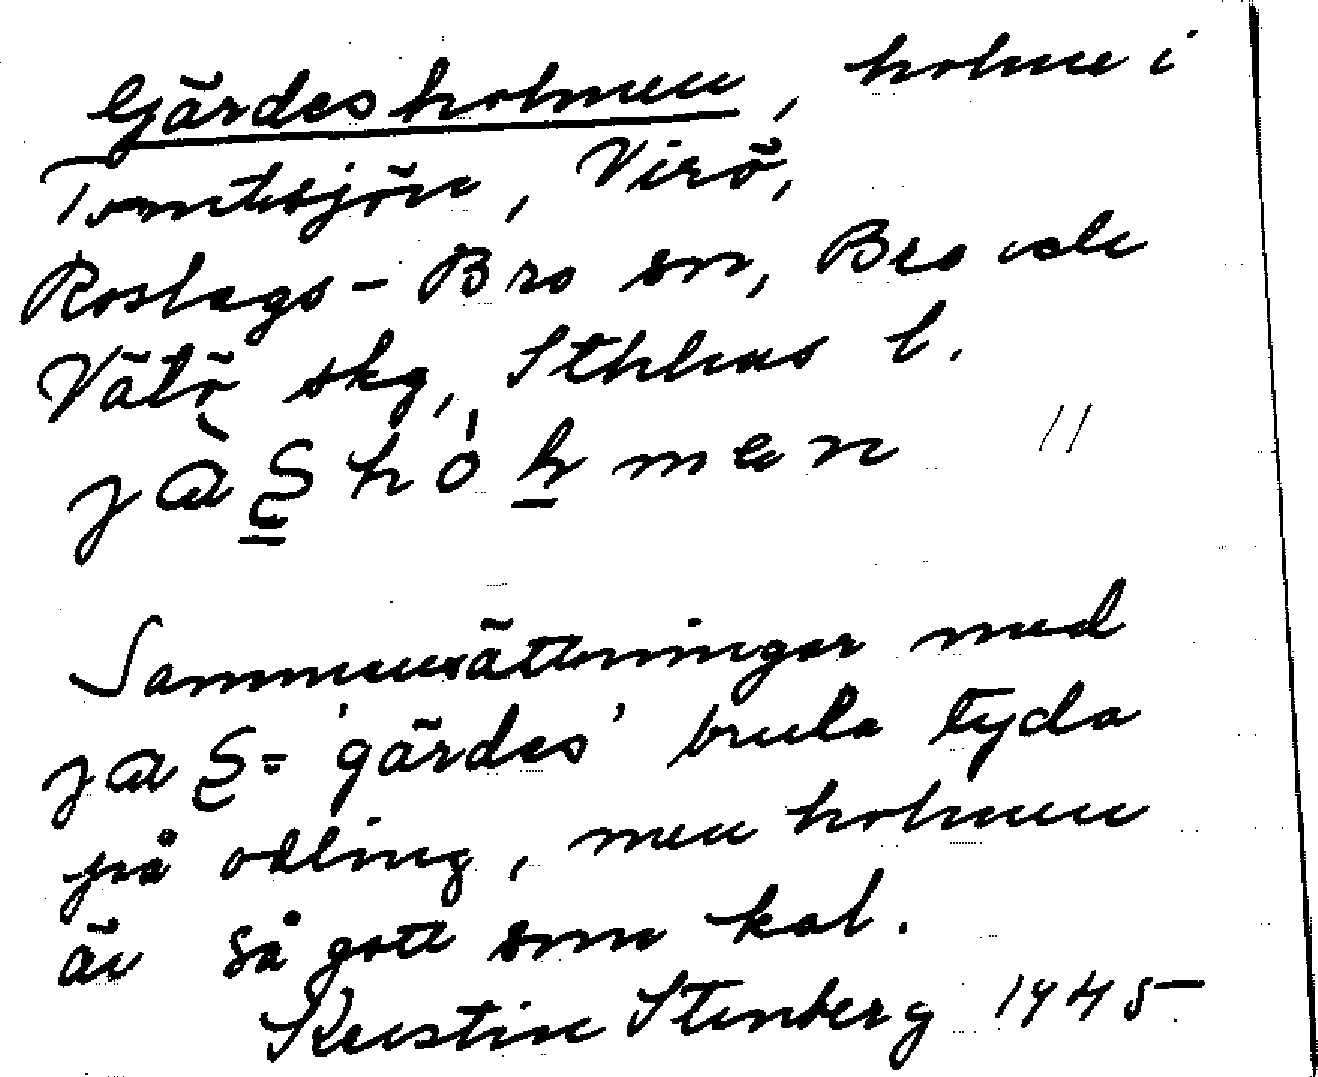 Gärdesholmen, holme i
Tomtsjön, Virö,
Roslags-Bro sn, Bro och
Vätö skg, Sthlms l.
Sammansättningar med
'gärdes' bruka tyda
på odling, men holmen
är så gott som kal.
Kerstin Stenberg 1945